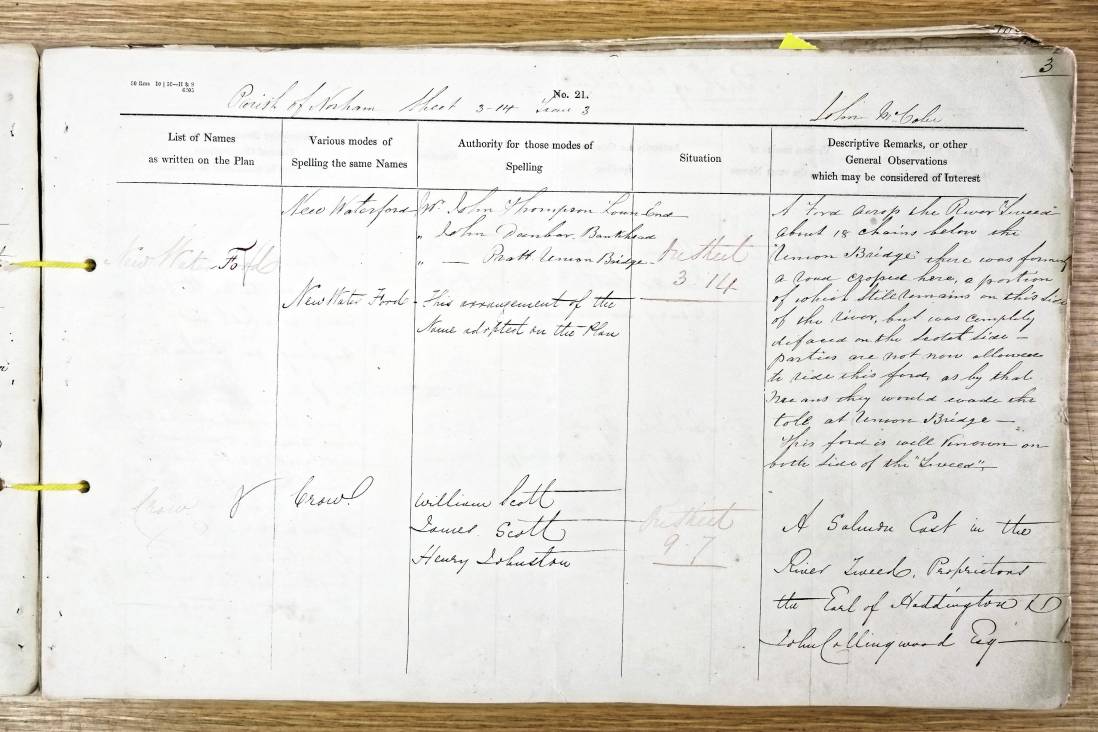 3
50 Rms 10 | 55—H & S
6595
No. 21.
Parish of Norham Sheet 3-14 Trace 3
John McCabe
List of Names
as written on the Plan
Various modes of
Spelling the same Names
Authority for those modes of
Spelling
Situation
Descriptive Remarks, or other
General Observations
which may be considered of Interest
New Water Ford
New Waterford
Mr. John Thompson Town End
" John Dunbar Bankhead
" — Pratt Union Bridge
New Water Ford
This arrangement of the
Name adopted on the Plan
In Sheet
3.14
A Ford across the River "Tweed"
about 18 chains below the
"Union Bridge" there was formerly
a road crossed here, a portion
of which still remains on this side
of the river, but was completely
defaced on the Scotch side —
parties are not now allowed
to ride this ford, as by that
means they would evade the
toll at Union Bridge —
This ford is well known on
both side of the "Tweed".
Crow
Crow
William Scott
James Scott
Henry Johnston
In Sheet
9.7
A Salmon Cast in the
River Tweed, Proprietors
the Earl of Haddington &
John Collingwood Esq